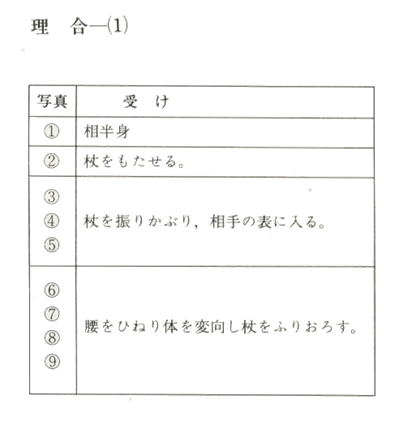 理 合—(1)
写真 受 け
① 相半身
② 杖をもたせる。
③
④ 杖を振りかぶり，相手の表に入る。
⑤
⑥
⑦
腰をひねり体を変向し杖をふりおろす。
⑧
⑨